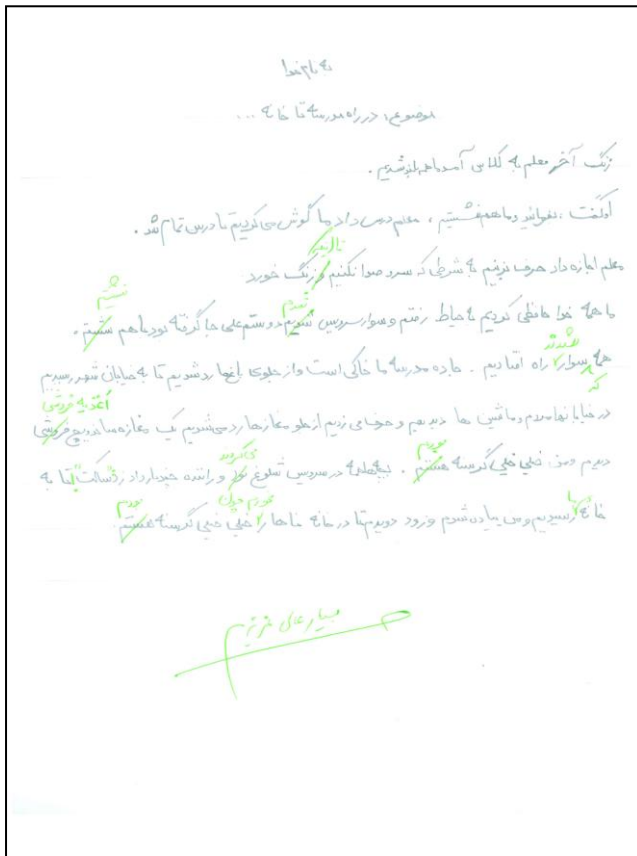 به نام خدا
موضوع: در راه مدرسه تا خانه ...
زنگ آخر معلم به کلاس آمد ما همه بلند شدیم.
او گفت، بفرمائید و ما هم نشستیم، معلم درس داد ما گوش می کردیم تا درس تمام شد.
معلم اجازه داد حرف بزنیم به شرطی که سر و صدا نکنیم و زنگ خورد
نشستیم شدم
ما همه خدا حافظی کردیم به حیاط رفتم و سوار سرویس شدیم دوستم علی جا گرفته بود ما هم نشستم.
شدند
همه سوار راه افتادیم. جاده مدرسه ما خاکی است و از جلوی باغها رد شدیم تا به خیابان شهر رسیدیم
که اغذیه فروشی
در خیابانها مردم و ماشین ها دیدیم و حرف می زدیم از جلو مغازه ها رد می شدیم یک مغازه ساندویچ فروشی
بودم می کردند
دیدم و من خیلی خیلی گرسنه هستم. بچه ها همه در سرویس شلوغ بود و راننده چند بار داد زد ساکت تا به
خوردم چون بودم
خانه رسیدیم و من پیاده شدم و زود دویدم تا در خانه ناهار را خیلی خیلی گرسنه هستم.
بسیار عالی عزیزم